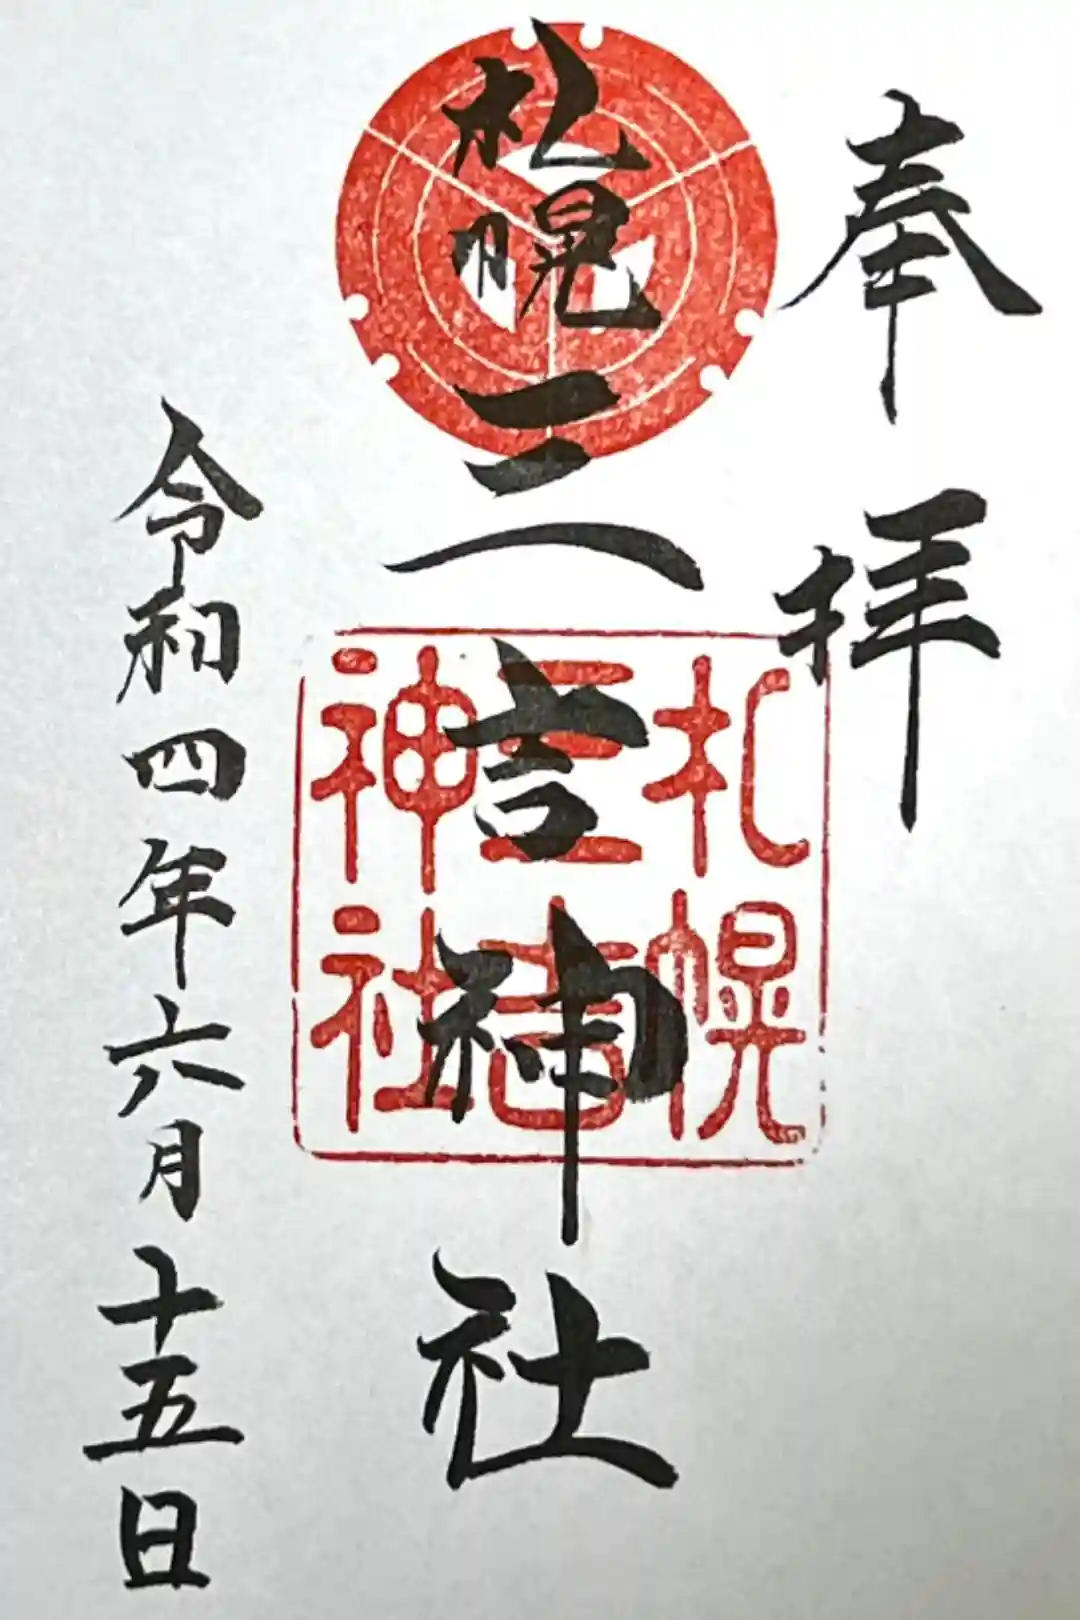 奉拝
札幌三吉神社
札幌
三吉
神社
令和四年六月十五日